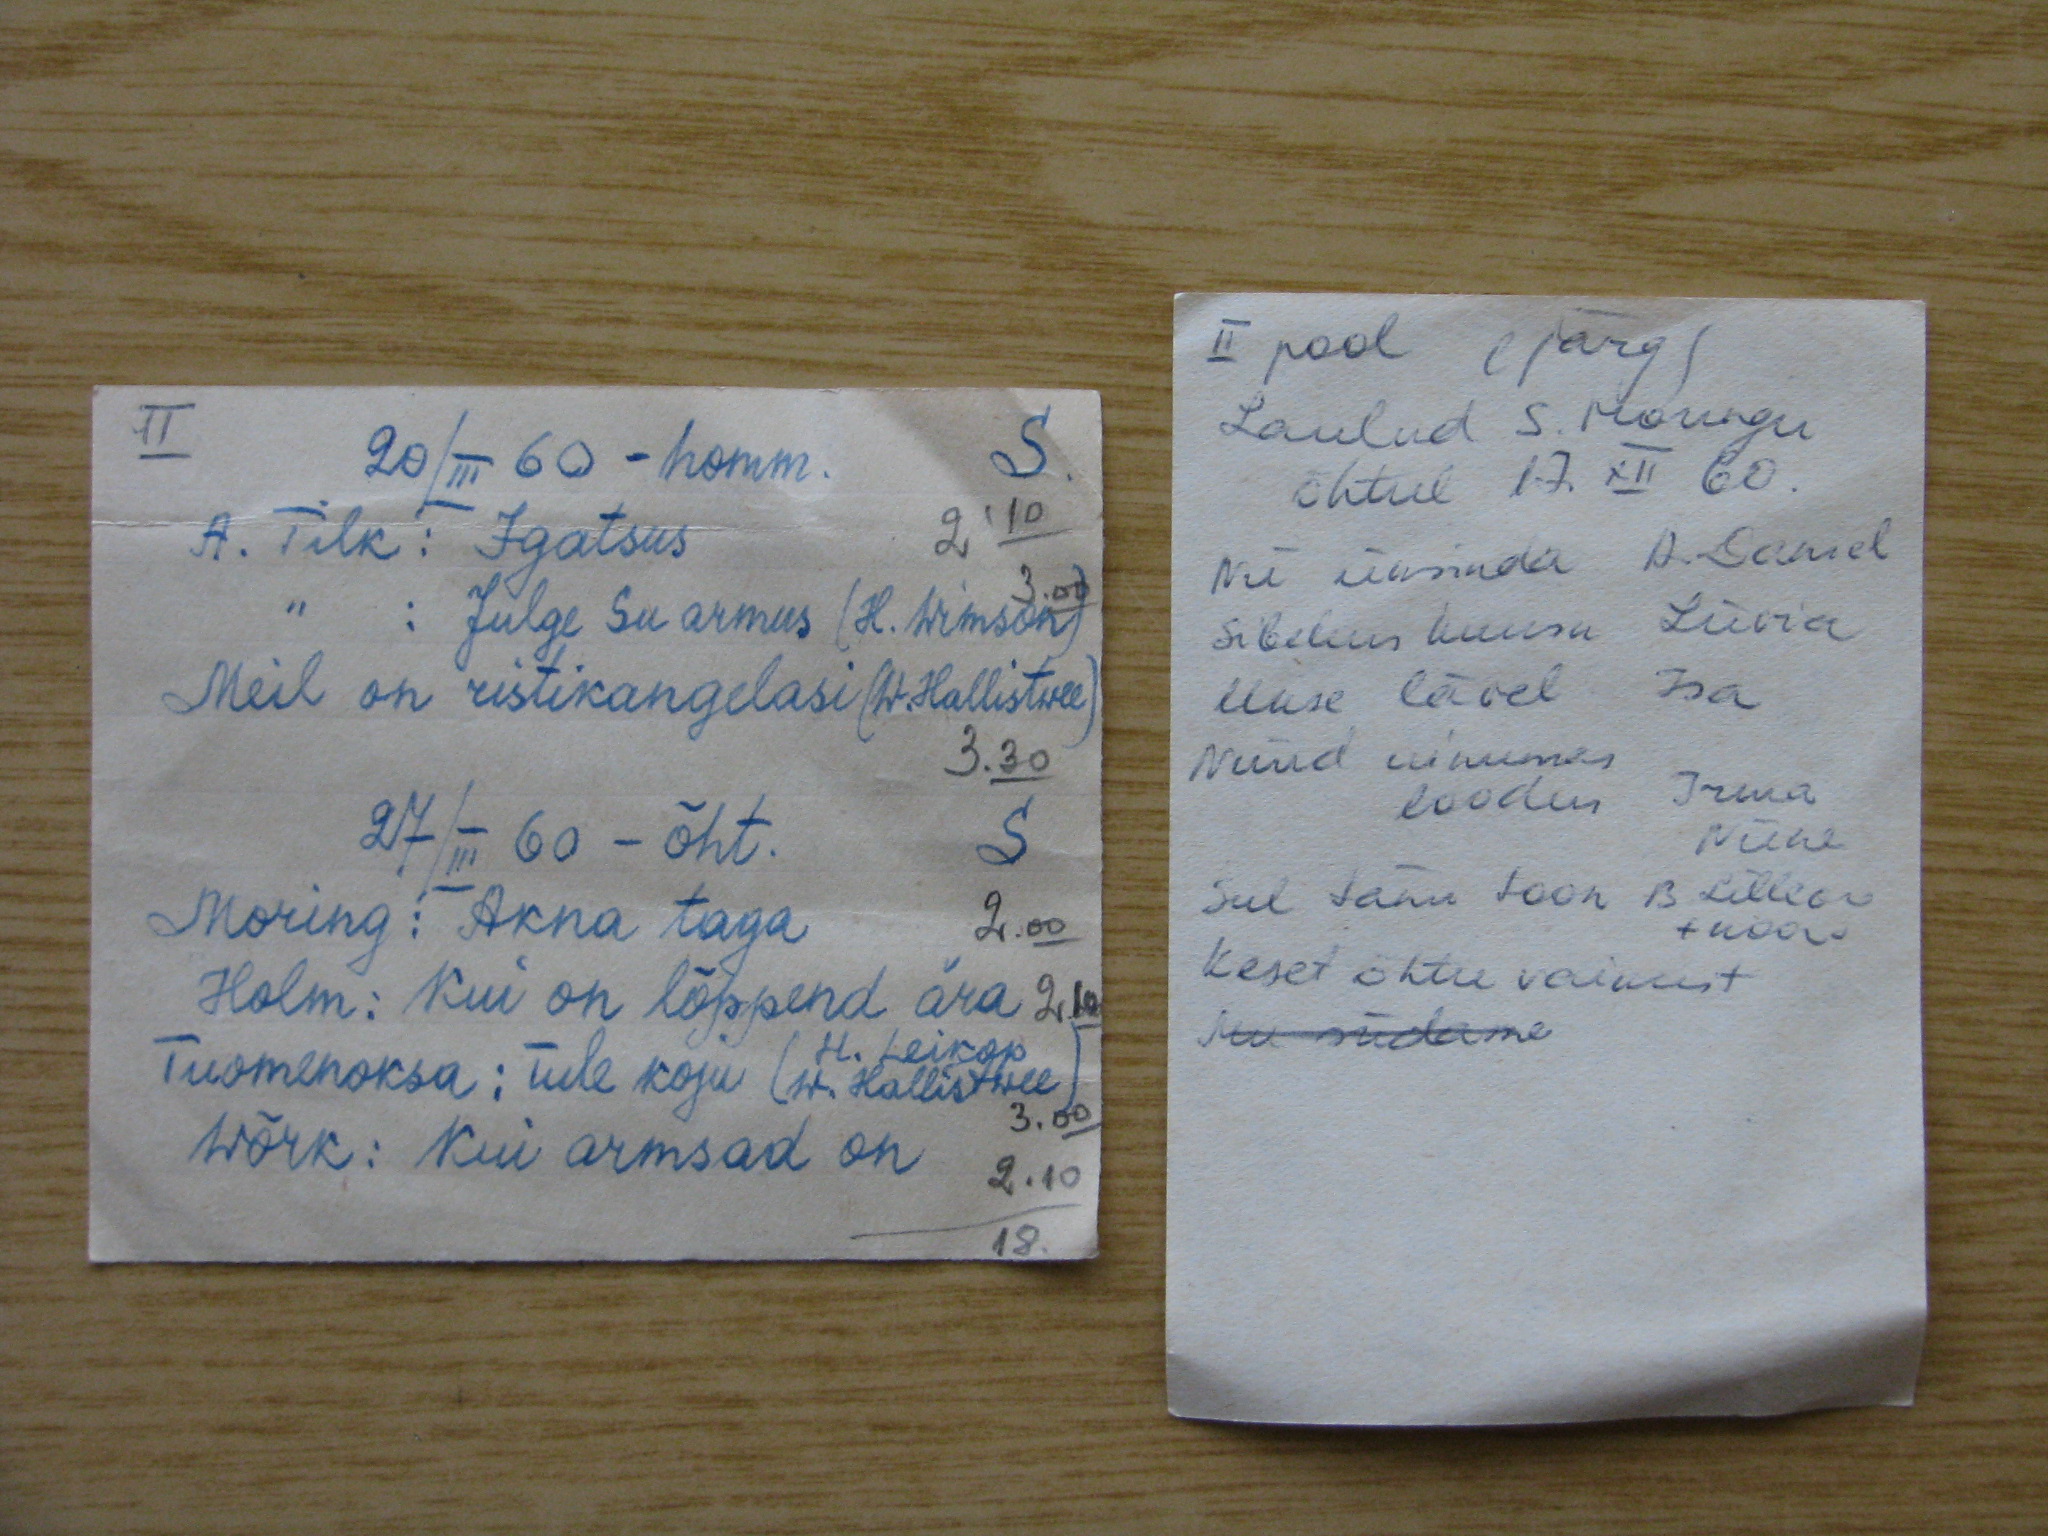 II
20/III 60 - homm. S.
A. Tilk: Igatsus 2'10
" : Julge Su armus (H. Wimson) 3.00
Meil on ristikangelasi (W. Hallistwee)
3.30
27/III 60 - õht. S
Moring: Akna taga 2.00
Holm: Kui on lõppend ära 2.10
Tuomenoksa: Tule koju (H. Leikop
W. Hallistwee)
3.00
Wõrk: Kui armsad on
2.10
18.
II pool (järg)
Laulud S. Moringu
õhtul 17. XII 60.
Nii üksinda A. Daniel
Sibeliuse kuusu Liivia
Ukse lävel Isa
Nüüd uinumas
loodus Irma
Sul tänu toon B
Keset õhtu vaikust
Mu südame